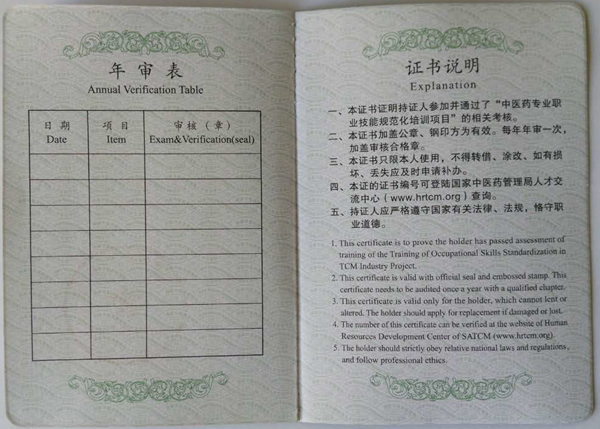 年审表
Annual Verification Table
日期 项目 审核（章）
Date Item Exam&Verification(seal)
证书说明
Explanation
一、本证书证明持证人参加并通过了“中医药专业职
业技能规范化培训项目”的相关考核。
二、本证书加盖公章、钢印方为有效。每年年审一次，
加盖审核合格章。
三、本证书只限本人使用，不得转借、涂改、如有损
坏、丢失应及时申请补办。
四、本证的证书编号可登陆国家中医药管理局人才交
流中心（www.hrtcm.org）查询。
五、持证人应严格遵守国家有关法律、法规，恪守职
业道德。
1. This certificate is to prove the holder has passed assessment of
training of the Training of Occupational Skills Standardization in
TCM Industry Project.
2. This certificate is valid with official seal and embossed stamp. This
certificate needs to be audited once a year with a qualified chapter.
3. This certificate is valid only for the holder, which cannot lent or
altered. The holder should apply for replacement if damaged or lost.
4. The number of this certificate can be verified at the website of Human
Resources Development Center of SATCM (www.hrtcm.org).
5. The holder should strictly obey relative national laws and regulations,
and follow professional ethics.